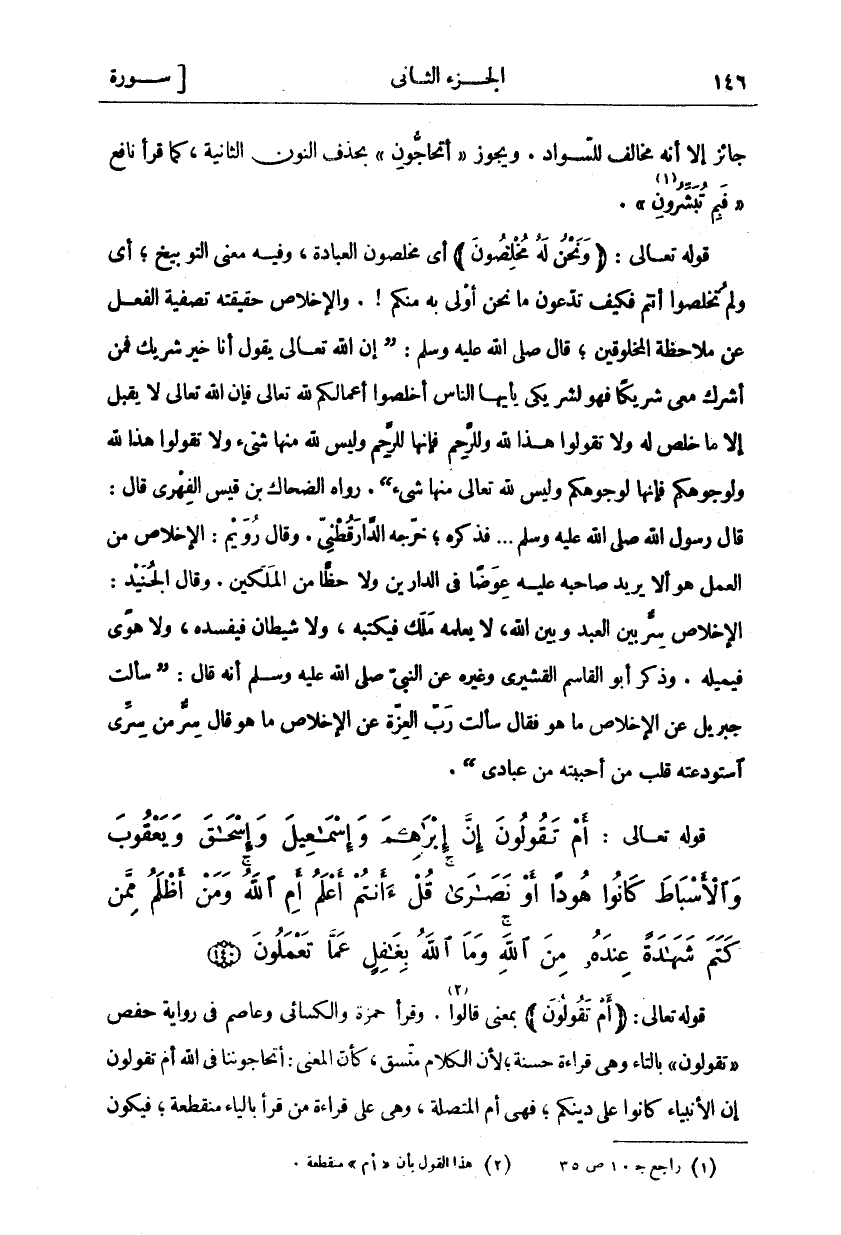 ١٤٦ الجزء الثانى [ ســورة
جائز إلا أنه مخالف للسّواد . ويجوز « أتحاجُّونِ » بحذف النون الثانية ، كما قرأ نافع
« فَبِم تُبَشِّرونِ » (١) .
قوله تعالى : ﴿ وَنَحْنُ لَهُ مُخْلِصُونَ ﴾ أى مخلصون العبادة ، وفيه معنى التوبيخ ؛ أى
ولم تُخلصوا أنتم فكيف تدّعون ما نحن أوْلى به منكم ! . والإخلاص حقيقته تصفية الفعل
عن ملاحظة المخلوقين ؛ قال صلى الله عليه وسلم : ” إن الله تعالى يقول أنا خير شريك فمن
أشرك معى شريكًا فهو لشريكى يأيها الناس أخلصوا أعمالكم لله تعالى فإن الله تعالى لا يقبل
إلا ما خلص له ولا تقولوا هذا لله وللرَّحِم فإنها للرَّحِم وليس لله منها شىء ولا تقولوا هذا لله
ولوجوهكم فإنها لوجوهكم وليس لله تعالى منها شىء “ . رواه الضحاك بن قيس الفِهْرى قال :
قال رسول الله صلى الله عليه وسلم ... فذكره ؛ خرّجه الدَّارَقُطْنِىّ . وقال رُوَيْم : الإخلاص من
العمل هو ألا يريد صاحبه عليه عِوَضًا فى الدارين ولا حظًّا من المَلَكين . وقال الجُنَيْد :
الإخلاص سِرٌّ بين العبد وبين الله، لا يعلمه مَلَك فيكتبه ، ولا شيطان فيفسده ، ولا هوًى
فيميله . وذكر أبو القاسم القشيرى وغيره عن النبىّ صلى الله عليه وسلم أنه قال : ” سألت
جبريل عن الإخلاص ما هو فقال سألت رَبّ العِزّة عن الإخلاص ما هو قال سِرٌّ من سِرِّى
آستودعته قلب من أحببته من عبادى “ .
قوله تعالى : أَمْ تَقُولُونَ إِنَّ إِبْرَٰهِـۧمَ وَإِسْمَـٰعِيلَ وَإِسْحَـٰقَ وَيَعْقُوبَ
وَٱلْأَسْبَاطَ كَانُوا هُودًا أَوْ نَصَـٰرَىٰ ۗ قُلْ ءَأَنتُمْ أَعْلَمُ أَمِ ٱللَّهُ ۗ وَمَنْ أَظْلَمُ مِمَّن
كَتَمَ شَهَـٰدَةً عِندَهُۥ مِنَ ٱللَّهِ ۗ وَمَا ٱللَّهُ بِغَـٰفِلٍ عَمَّا تَعْمَلُونَ ﴿١٤٠﴾
قوله تعالى: ﴿ أَمْ تَقُولُونَ ﴾ بمعنى قالوا (٢) . وقرأ حمزة والكسائى وعاصم فى رواية حفص
«تقولون» بالتاء وهى قراءة حسنة؛ لأن الكلام متّسق ، كأنّ المعنى : أتحاجوننا فى الله أم تقولون
إن الأنبياء كانوا على دينكم ؛ فهى أم المتصلة ، وهى على قراءة من قرأ بالياء منقطعة ؛ فيكون
(١) راجع جـ ١٠ ص ٣٥ (٢) هذا القول بأن « أم » منقطعة .